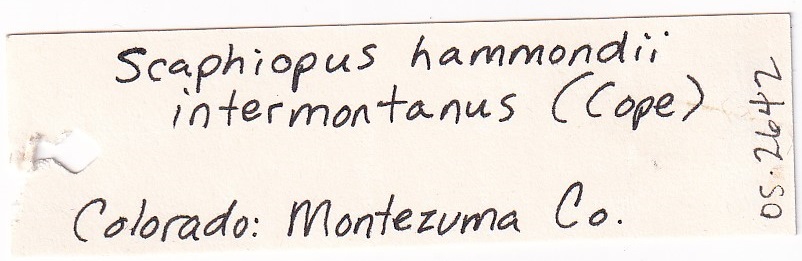 Scaphiopus hammondii
intermontanus (Cope)
Colorado: Montezuma Co.
OS.2642